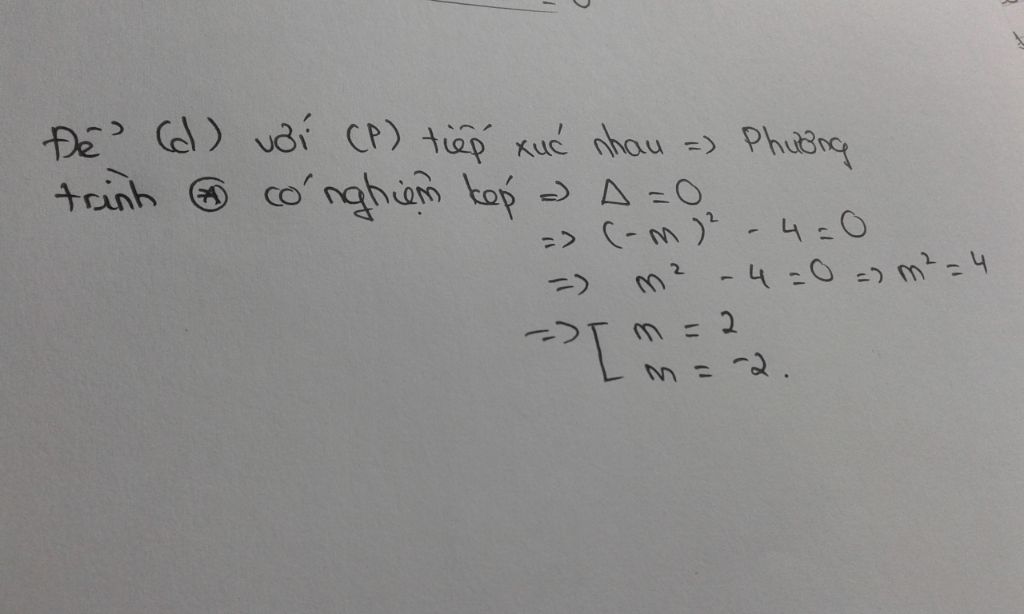 Để (d) với (P) tiếp xúc nhau => Phương
trình (*) có nghiệm kép => Δ = 0
=> (-m)² - 4 = 0
=> m² - 4 = 0 => m² = 4
=> [ m = 2
m = -2.